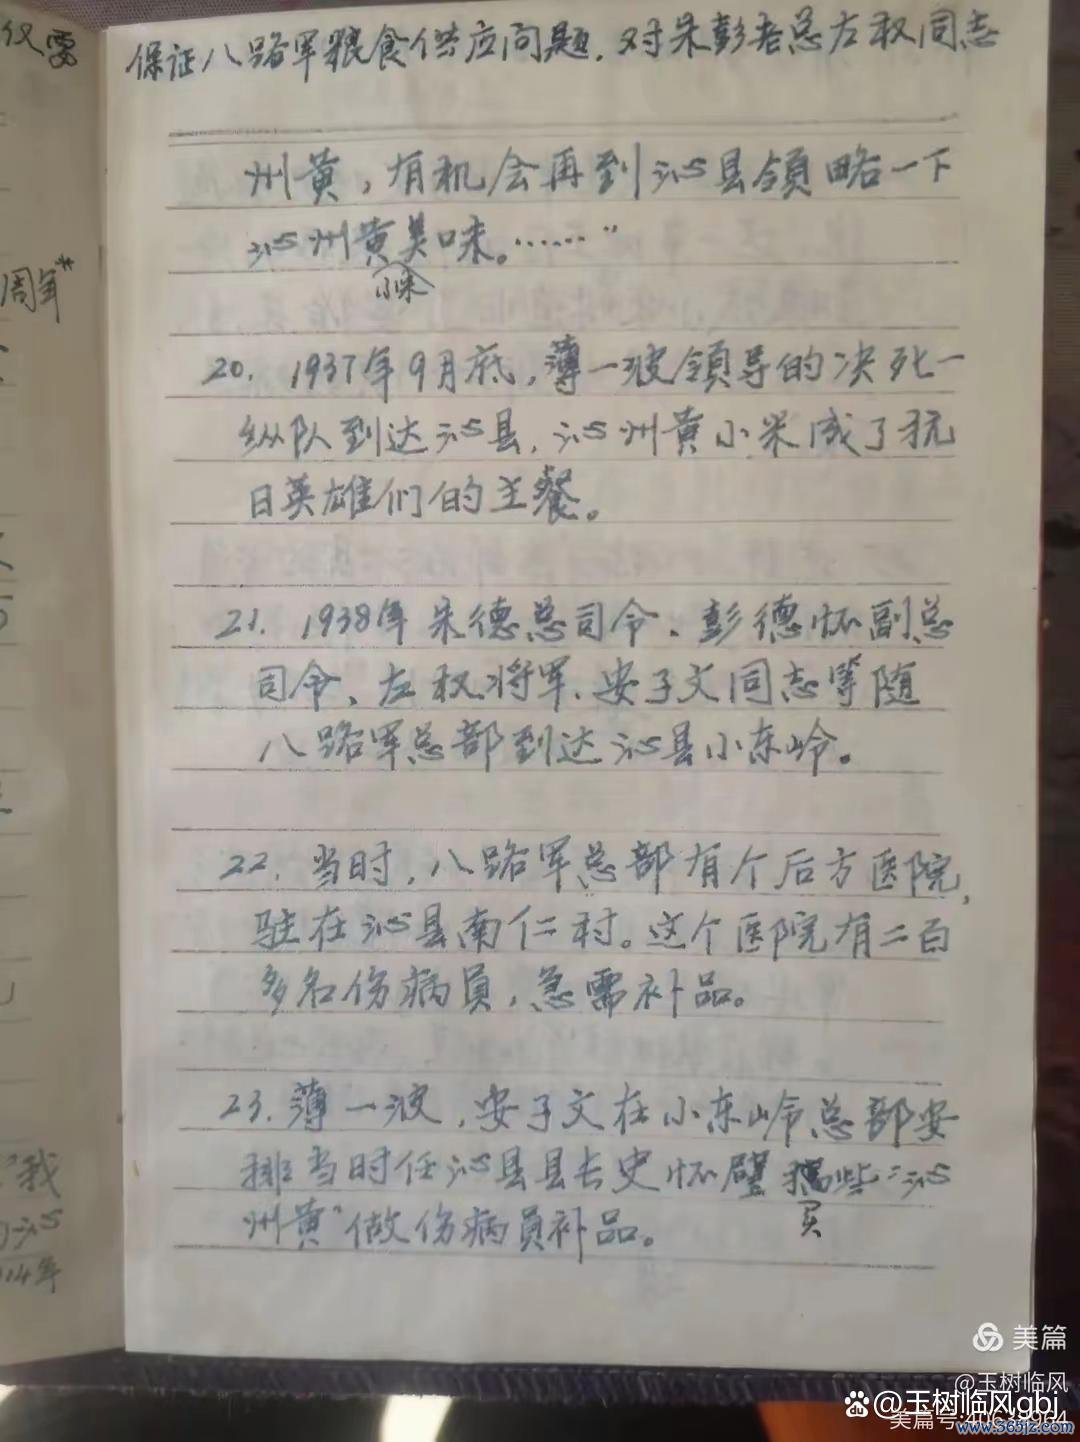 仅需
周年*
我
沁
14年
保证八路军粮食供应问题.对朱彭老总左权同志
州黄,有机会再到沁县领略一下
沁州黄美味。……"
小米
20. 1937年9月底,薄一波领导的决死一
纵队到达沁县,沁州黄小米成了抗
日英雄们的主餐。
21. 1938年朱德总司令、彭德怀副总
司令、左权将军、安子文同志等随
八路军总部到达沁县小东岭。
22. 当时,八路军总部有个后方医院,
驻在沁县南仁村。这个医院有二百
多名伤病员,急需补品。
23. 薄一波,安子文在小东岭总部安
排当时任沁县县长史怀璧 些"沁
买
州黄"做伤病员补品。
美篇
@玉树临风
@玉树临风gbj
美篇号:
du
www.365jz.com